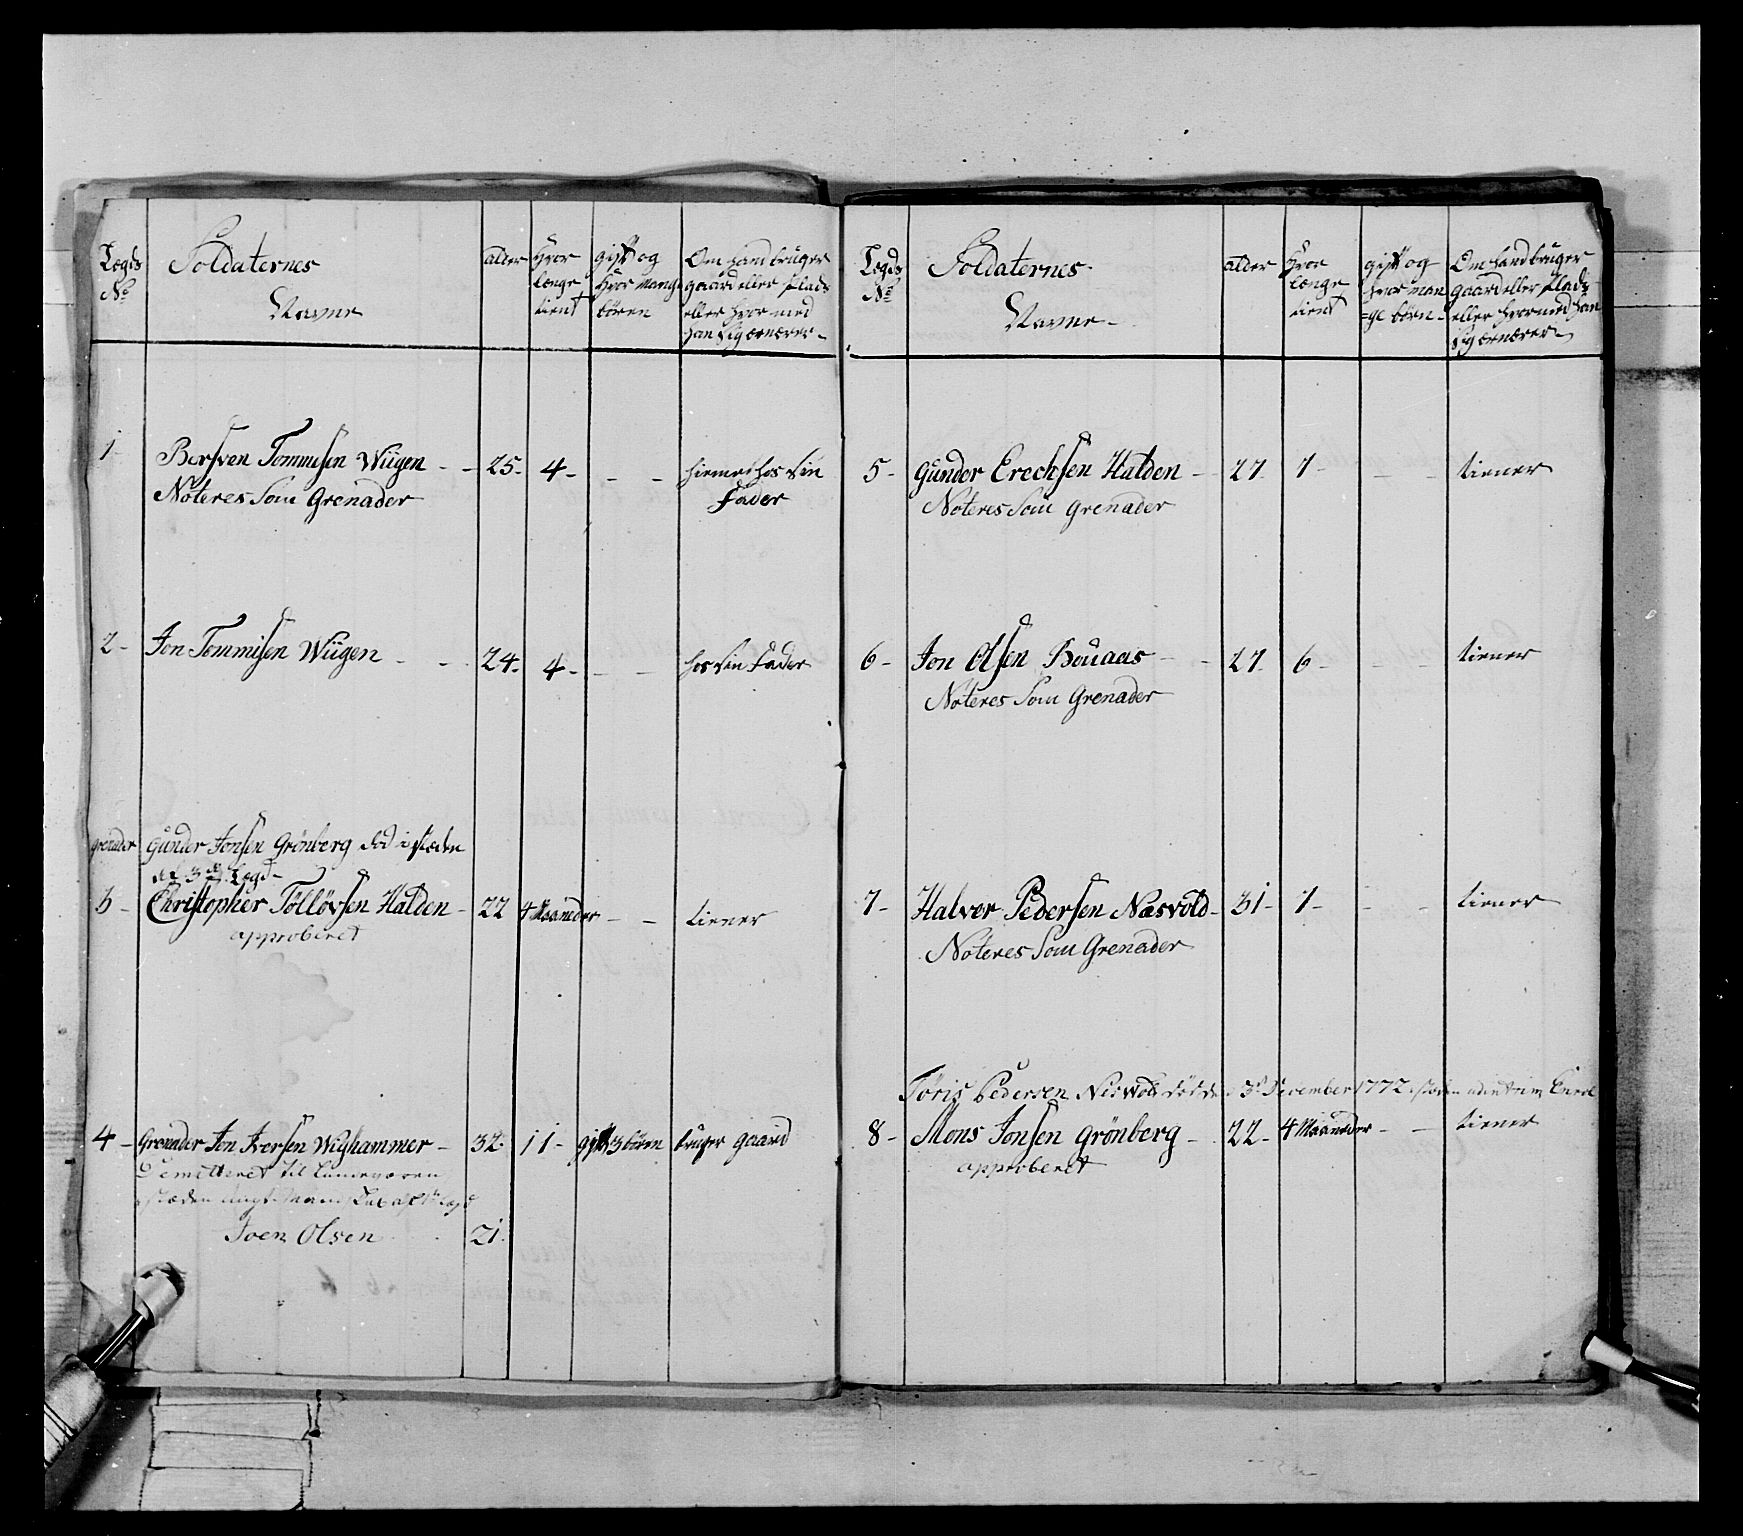 Legds
No
Soldaternes
Navne
alder
Hvor
lenge
tient
gift og
Hvor mange
bören
Om Hand bruger
gaard eller Plads
eller Hvor med
Han Sig ærnærer
1 - Bersven Tommesen Wiigen - - 25 - 4 - - - hiemme hos sin
Noteres Som Grenader Fader
2 - Jon Tommisen Wiigen - - 24 - 4 - - - hos sin Fader
Grenader Gunder Jonsen Grönberg död i stæden
3 Legd
3 - Christopher Tölløvsen Halden - 22 4 Maaneder - - tiener
approberet
4 - Grenader Jon Iversen Wighammer - 32 - 11 - gift 3 börn bruger gaard
Demitteret til Landværn
istæden
Joen Olsen 21
Legds
No
Soldaternes
Navne
alder
Hvor
længe
tient
gift og
hvor man
=ge börn
Om Hand bruger
Gaard eller Plads
eller hvor med Han
Sig ærnærer
5 - Gunder Erechsen Halden - 27 - 7 - - - tiener
Noteres Som Grenader
6 - Jon Olsen Bouaas - - 27 - 6 - - - tiener
Noteres Som Grenader
7 - Halver Pedersen Næsvold - 31 - 7 - - - tiener
Noteres Som Grenader
Töris Pedersen Neswold döde 3 December 1772
8 - Mons Jonsen Grönberg - 22 - 4 Maaneder - - tiener
approberet